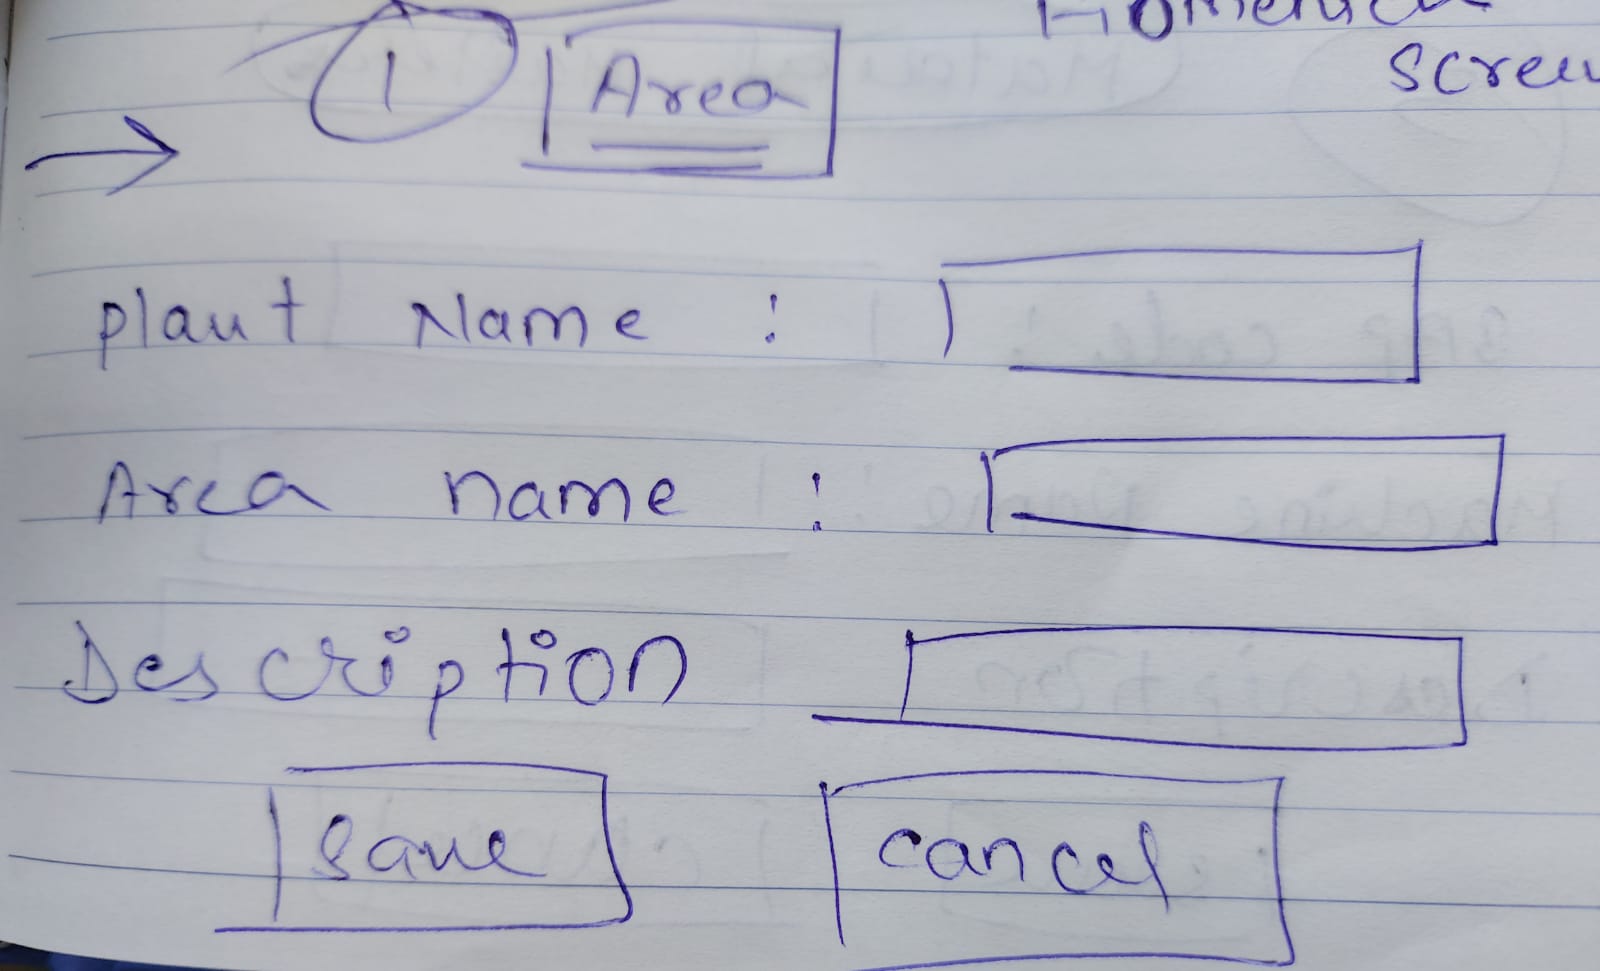 Screen
1 Area
Plant Name :
Area name :
Description
Save
Cancel